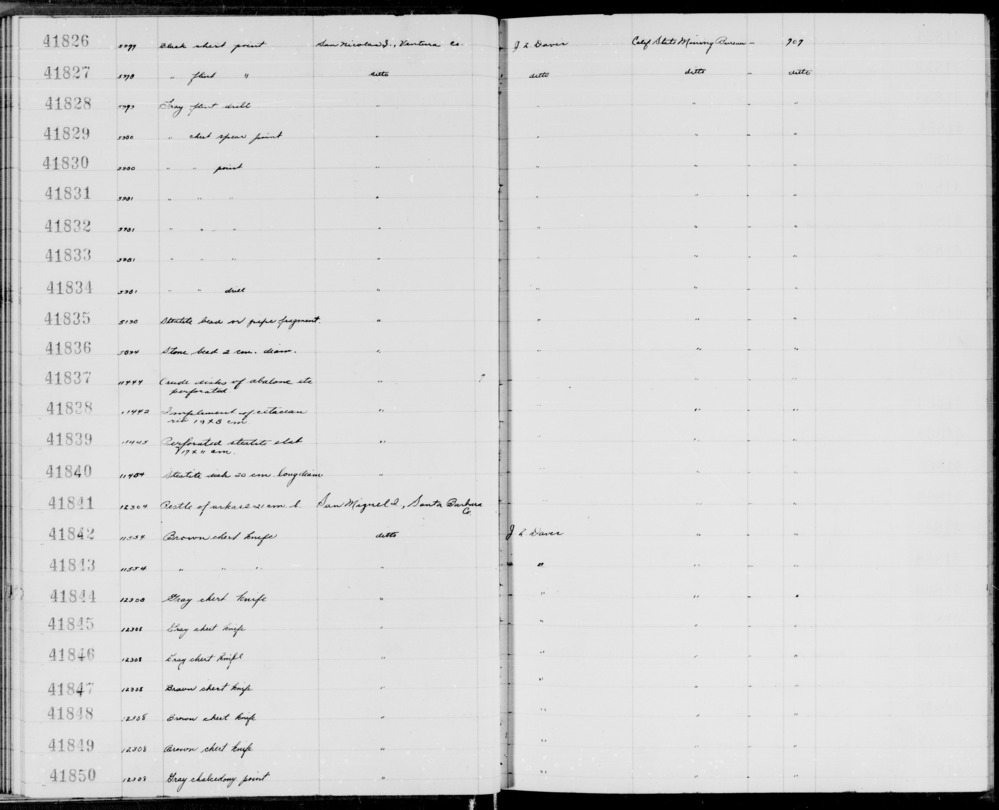 41826 Black chert point San Nicolas I., Ventura Co. J L Davis Calif State Mining Bureau - 909
41827 " flint " ditto ditto ditto - ditto
41828 Gray flint drill " " " - "
41829 " chert spear point " " " - "
41830 " " point " " " - "
41831 " " " " " " - "
41832 " " " " " " - "
41833 " " " " " " - "
41834 " " drill " " " - "
41835 5130 Steatite bead or pipe fragment. " " " - "
41836 Stone bead 2 cm. diam. " " " - "
41837 11444 Crude disks of abalone etc " ? " " - "
perforated.
41838 11442 Implement of cetacean " " " - "
rib 19 x 8 cm
41839 11445 Perforated steatite slab " " " - "
19 x 11 cm.
41840 11454 Steatite dish 20 cm long diam " " " - "
41841 12304 Pestle of 21 cm. l. San Miguel I, Santa Barbara " " - "
Co.
41842 11554 Brown chert knife ditto J L Davis " - "
41843 11554 " " " " " " - "
41844 12308 Gray chert knife " " " - "
41845 12308 Gray chert knife " " " - "
41846 12308 Gray chert knife " " " - "
41847 12308 Brown chert knife " " " - "
41848 12308 Brown chert knife " " " - "
41849 12308 Brown chert knife " " " - "
41850 12308 Gray chalcedony point " " " - "